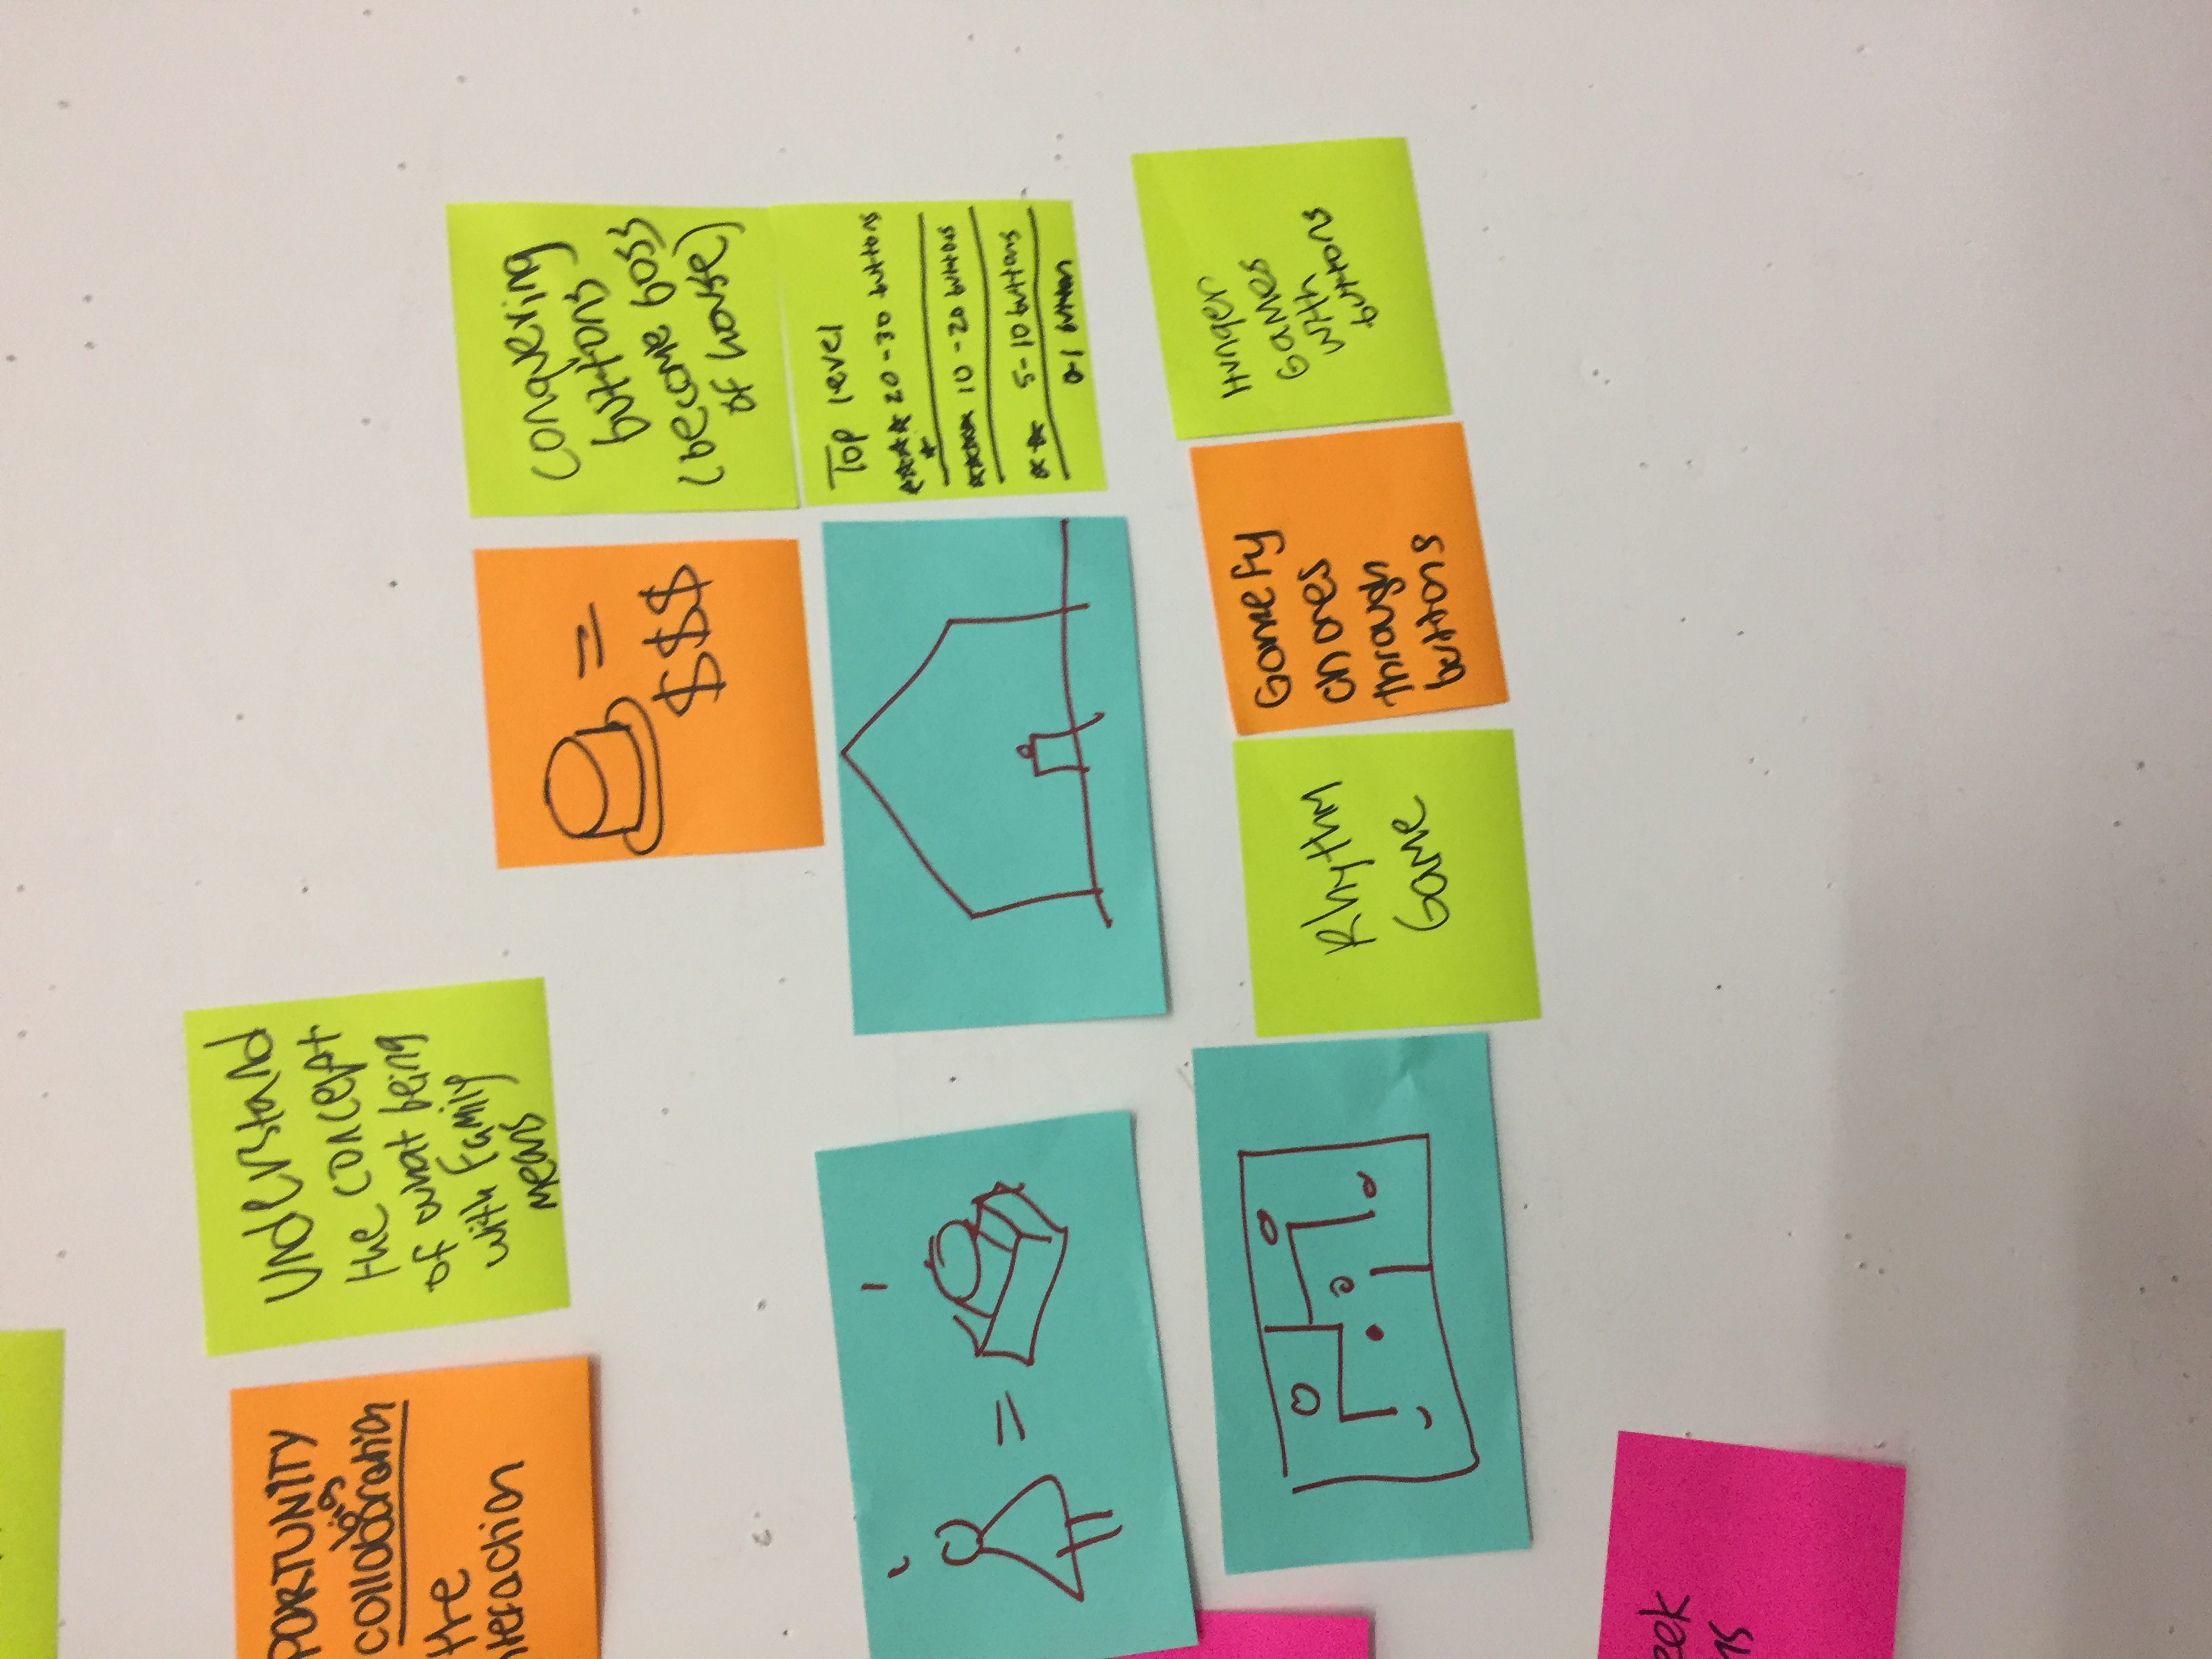 PORTUNITY
big
collaboration
the
nteraction
Understand
the concept
of what being
with Family
means
=
$$$
conquering
buttons
(become boss
of house)
Top level
20-30 buttons
10-20 buttons
5-10 buttons
0-1 button
=
Rhythm
Game
Gamefy
chores
through
buttons
Hunger
Games
with
buttons
eek
ns